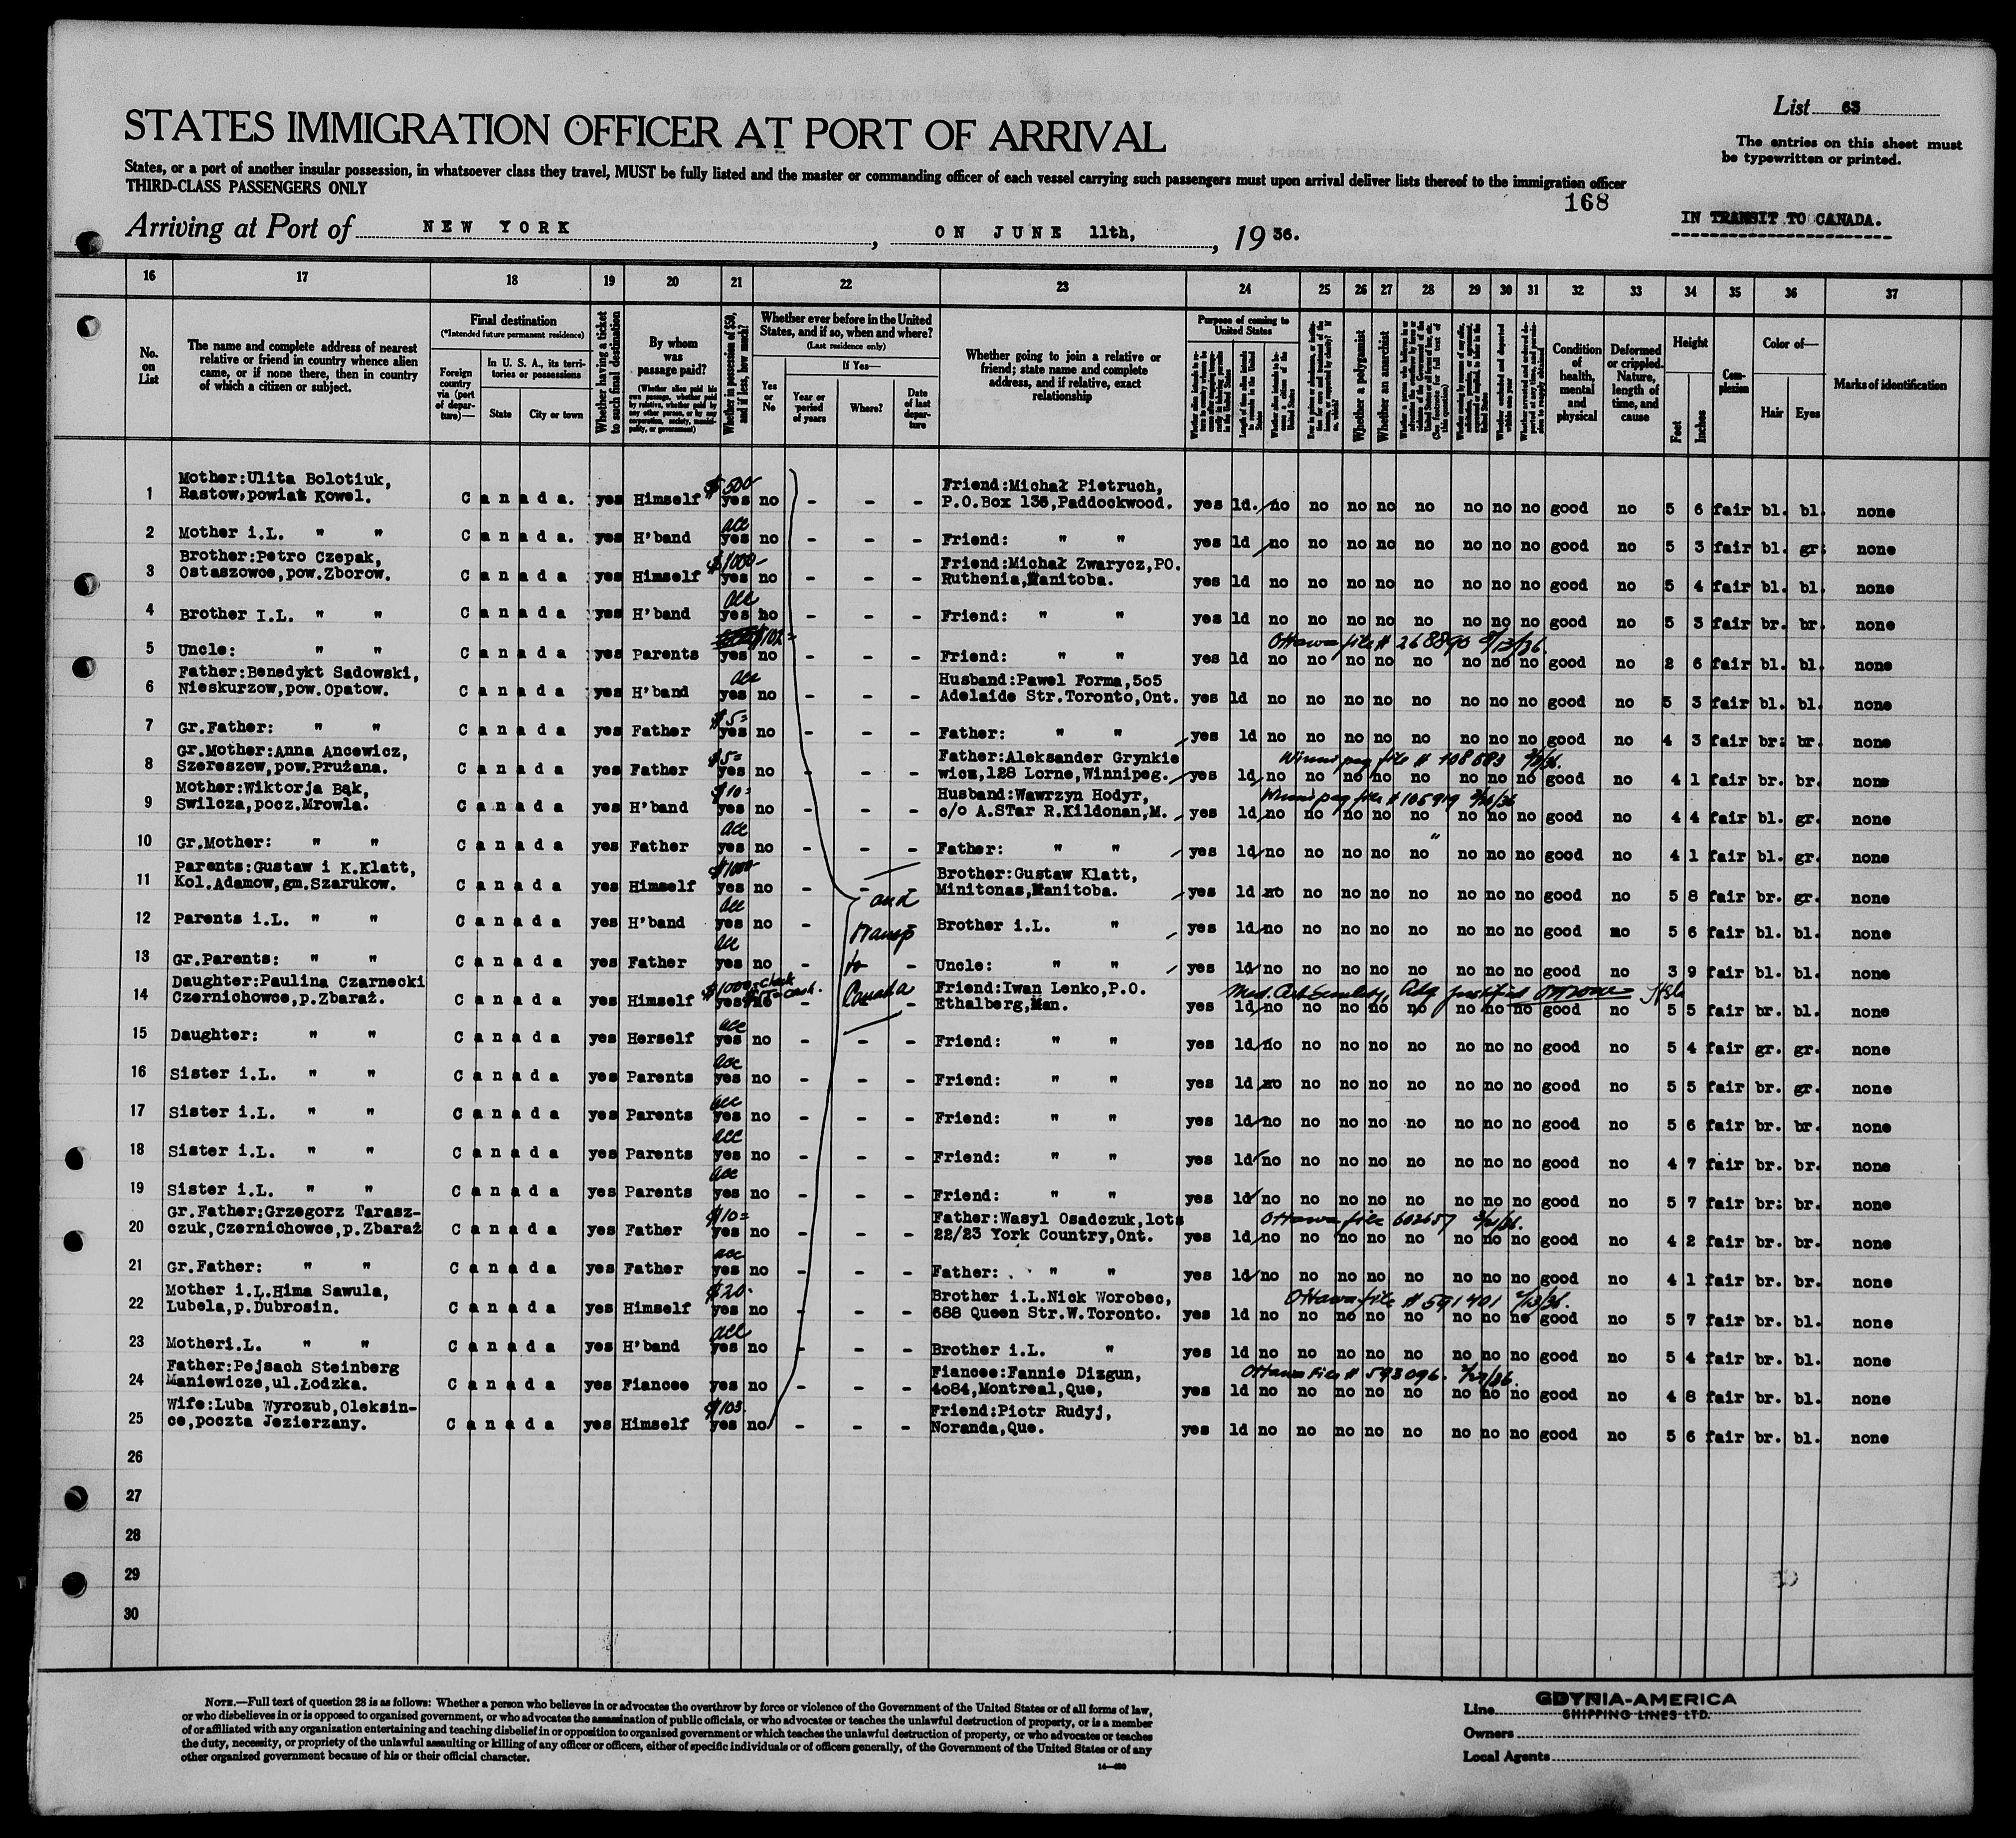 List 63
STATES IMMIGRATION OFFICER AT PORT OF ARRIVAL
The entries on this sheet must
be typewritten or printed.
States, or a port of another insular possession, in whatsoever class they travel, MUST be fully listed and the master or commanding officer of each vessel carrying such passengers must upon arrival deliver lists thereof to the immigration officer
THIRD-CLASS PASSENGERS ONLY
168
IN TRANSIT TO CANADA.
Arriving at Port of NEW YORK, ON JUNE 11th, 1936.
16 17 18 19 20 21 22 23 24 25 26 27 28 29 30 31 32 33 34 35 36 37
No. on List
The name and complete address of nearest relative or friend in country whence alien came, or if none there, then in country of which a citizen or subject.
Final destination
(*Intended future permanent residence)
Foreign country via (port of departure)—
In U. S. A., its territories or possessions
State
City or town
Whether having a ticket to such final destination
By whom was passage paid?
(Whether alien paid his own passage, whether paid by relative, whether paid by any other person, or by any corporation, society, municipality, or government)
Whether in possession of $50, and if less, how much?
Whether ever before in the United States, and if so, when and where?
(Last residence only)
Yes or No
If Yes—
Year or period of years
Where?
Date of last departure
Whether going to join a relative or friend; state name and complete address, and if relative, exact relationship
Purpose of coming to United States
Length of time alien intends to remain in the United States
Whether alien intends to become a citizen of the United States
Whether a polygamist
Whether an anarchist
(See footnote for full text of this question)
Condition of health, mental and physical
Deformed or crippled. Nature, length of time, and cause
Height
Feet
Inches
Complexion
Color of—
Hair
Eyes
Marks of identification
1 Mother:Ulita Bolotiuk, Rastow,powiat Kowel. Canada. yes Himself $500 yes no - - - Friend:Michał Pietruch, P.O.Box 136,Paddockwood. yes 1d. no no no no no no no no good no 5 6 fair bl. bl. none
2 Mother i.L. " " Canada. yes H'band acc yes no - - - Friend: " " yes 1d no no no no no no no no good no 5 3 fair bl. gr. none
3 Brother:Petro Czepak, Ostaszowce,pow.Zborow. Canada yes Himself $1000- yes no - - - Friend:Michał Zwarycz,PO. Ruthenia,Manitoba. yes 1d no no no no no no no no good no 5 4 fair bl. bl. none
4 Brother I.L. " " Canada yes H'band acc yes no - - - Friend: " " yes 1d no no no no no no no no good no 5 3 fair br. br. none
5 Uncle: " " Canada yes Parents yes no - - - Friend: " " yes 1d no no no no no no no no good no 2 6 fair bl. bl. none
6 Father:Benedykt Sadowski, Nieskurzow,pow.Opatow. Canada yes H'band acc yes no - - - Husband:Pawel Forma,505 Adelaide Str.Toronto,Ont. yes 1d no no no no no no no no good no 5 3 fair bl. bl. none
7 Gr.Father: " " Canada yes Father $5= yes no - - - Father: " " yes 1d no no no no no no no no good no 4 3 fair br: br. none
8 Gr.Mother:Anna Ancewicz, Szereszow,pow.Prużana. Canada yes Father $5= yes no - - - Father:Aleksander Grynkie wicz,128 Lorne,Winnipeg. yes 1d no no no no no no no no good no 4 1 fair br. br. none
Winnipeg file #
9 Mother:Wiktorja Bąk, Swilcza,pocz.Mrowla. Canada yes H'band $10= yes no - - - Husband:Wawrzyn Hodyr, c/o A.STar R.Kildonan,M. yes 1d no no no no no no no no good no 4 4 fair bl. gr. none
Winnipeg file #
10 Gr.Mother: " " Canada yes Father acc yes no - - - Father: " " yes 1d no no no no no no no no good no 4 1 fair bl. gr. none
11 Parents:Gustaw i K.Klatt, Kol.Adamow,gm.Szarukow. Canada yes Himself $1000 yes no - - Brother:Gustaw Klatt, Minitonas,Manitoba. yes 1d no no no no no no no no good no 5 8 fair br. gr. none
12 Parents i.L. " " Canada yes H'band acc yes no - Brother i.L. " yes 1d no no no no no no no no good no 5 6 fair bl. bl. none
13 Gr.Parents: " " Canada yes Father acc yes no - - Uncle: " " yes 1d no no no no no no no no good no 3 9 fair bl. bl. none
and transp to Canada
14 Daughter:Paulina Czarnecki Czernichowce,p.Zbaraż. Canada yes Himself $1000= check yes no - - Friend:Iwan Lenko,P.O. Ethalberg,Man. yes 1d no no no no no no no no good no 5 5 fair br. bl. none
15 Daughter: " " Canada yes Herself acc yes no - - - Friend: " " yes 1d no no no no no no no no good no 5 4 fair gr. gr. none
16 Sister i.L. " " Canada yes Parents acc yes no - - - Friend: " " yes 1d no no no no no no no no good no 5 5 fair br. gr. none
17 Sister i.L. " " Canada yes Parents acc yes no - - - Friend: " " yes 1d no no no no no no no no good no 5 6 fair br. br. none
18 Sister i.L. " " Canada yes Parents acc yes no - - - Friend: " " yes 1d no no no no no no no no good no 4 7 fair br. br. none
19 Sister i.L. " " Canada yes Parents acc yes no - - - Friend: " " yes 1d no no no no no no no no good no 5 7 fair br: br. none
20 Gr.Father:Grzegorz Tarasz- czuk,Czernichowce,p.Zbaraż Canada yes Father $10= yes no - - - Father:Wasyl Osadczuk,lots 22/23 York Country,Ont. yes 1d no no no no no no no no good no 4 2 fair br. br. none
Ottawa file
21 Gr.Father: " " Canada yes Father acc yes no - - - Father: " " yes 1d no no no no no no no no good no 4 1 fair br. br. none
22 Mother i.L.Hima Sawula, Lubela,p.Dubrosin. Canada yes Himself $20. yes no - - - Brother i.L.Nick Worobec, 688 Queen Str.W.Toronto. yes 1d no no no no no no no no good no 5 7 fair br. bl. none
Ottawa file # 591401
23 Motheri.L. " " Canada yes H'band acc yes no - - - Brother i.L. " yes 1d no no no no no no no no good no 5 4 fair br. bl. none
24 Father:Pejsach Steinberg Maniewicze,ul.Łodzka. Canada yes Fiancee yes no - - - Fiancee:Fannie Dizgun, 4084,Montreal,Que, yes 1d no no no no no no no no good no 4 8 fair br. bl. none
Ottawa File # 593096.
25 Wife:Luba Wyrozub,Oleksin- ce,poczta Jezierzany. Canada yes Himself $103. yes no - - - Friend:Piotr Rudyj, Noranda,Que. yes 1d no no no no no no no no good no 5 6 fair br. bl. none
26
27
28
29
30
NOTE.—Full text of question 28 is as follows: Whether a person who believes in or advocates the overthrow by force or violence of the Government of the United States or of all forms of law,
or who disbelieves in or is opposed to organized government, or who advocates the assassination of public officials, or who advocates or teaches the unlawful destruction of property, or is a member
of or affiliated with any organization entertaining and teaching disbelief in or opposition to organized government or which teaches the unlawful destruction of property, or who advocates or teaches
the duty, necessity, or propriety of the unlawful assaulting or killing of any officer or officers, either of specific individuals or of officers generally, of the Government of the United States or of any
other organized government because of his or their official character.
Line GDYNIA-AMERICA
SHIPPING LINES LTD.
Owners
Local Agents